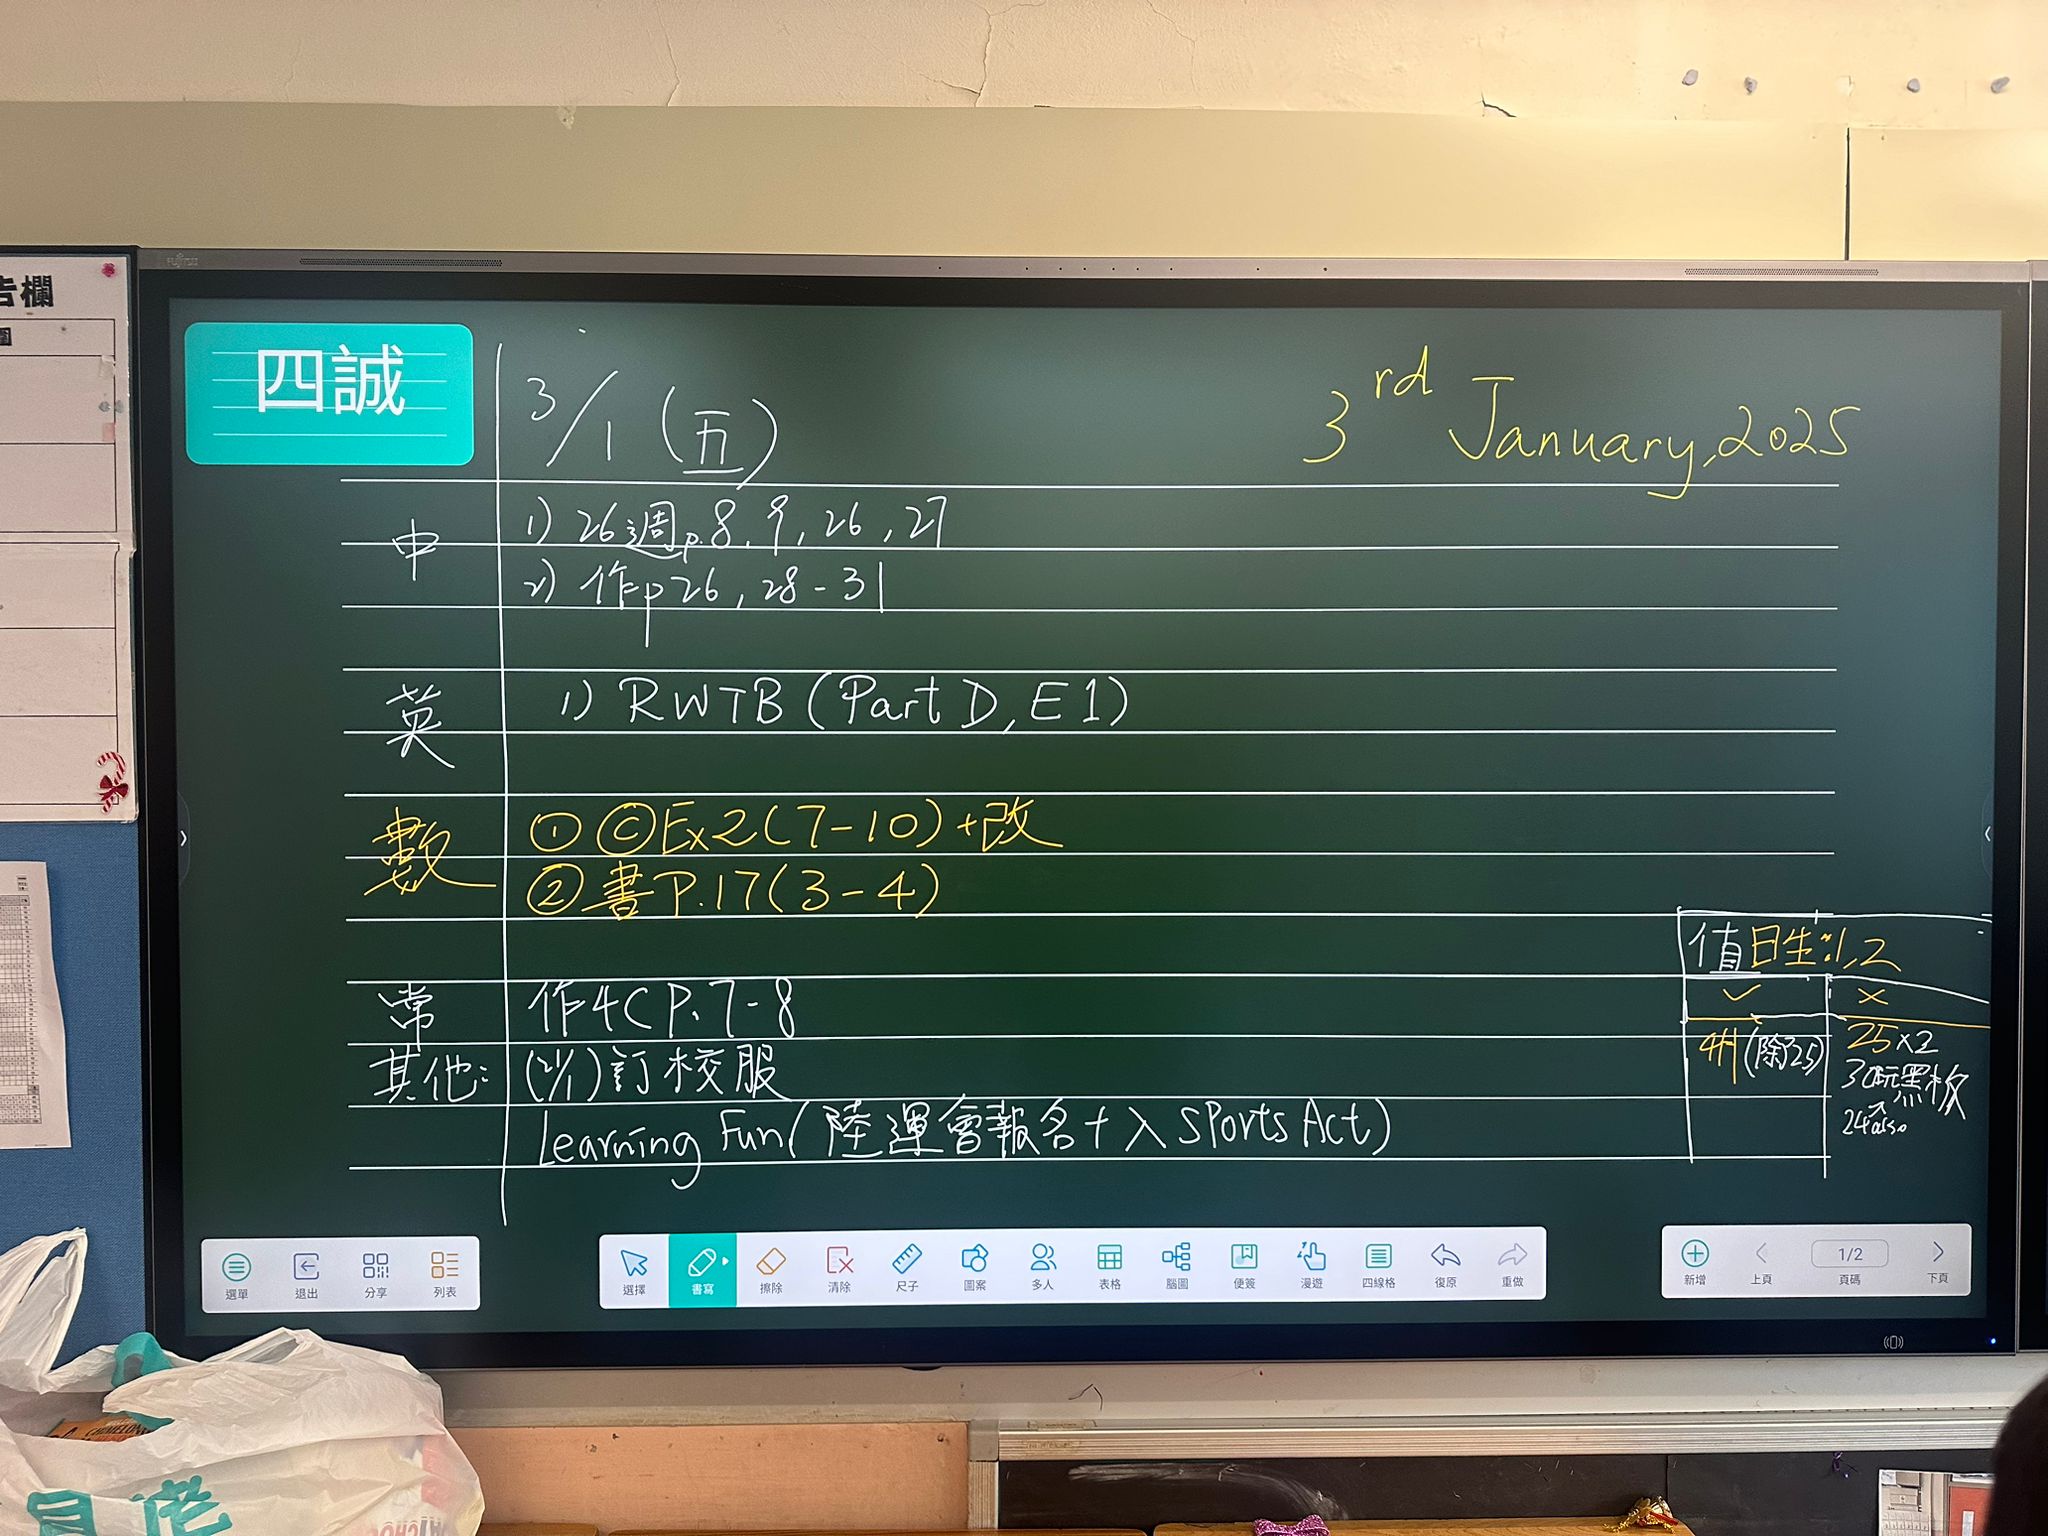 告欄
FUJITSU
四誠
3/1 (五)
3rd January, 2025
中
1) 26週p.8, 9, 26, 27
2) 作p26, 28-31
英
1) RWTB (Part D, E1)
數
① ©Ex2(7-10)+改
② 書P.17(3-4)
常
作4C P.7-8
其他:
訂校服
Learning Fun(陸運會報名+入Sports Act)
值日生:1,2
✓ ×
(除25)
25×2
黑板
24
選單 退出 分享 列表
選擇 書寫 擦除 清除 尺子 圖案 多人 表格 腦圖 便簽 漫遊 四線格 復原 重做
新增 上頁 1/2 頁碼 下頁